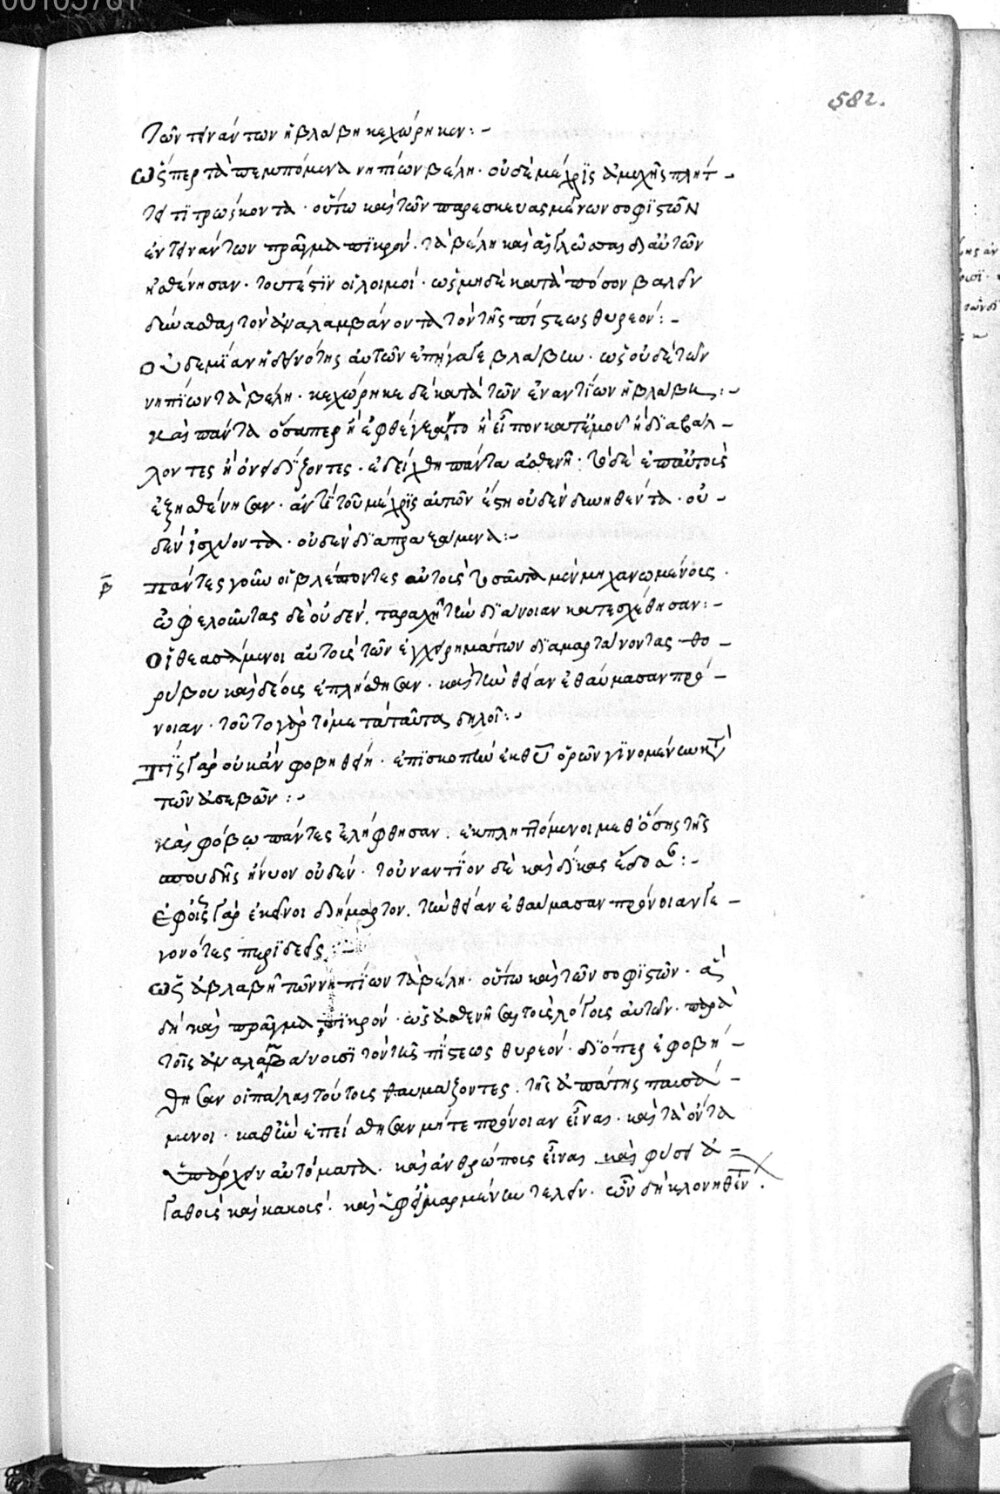 00105761
582.
τῶν ἐναντίων ἡ βλάβη κεχώρηκεν :-
Ὥσπερ τὰ πεμπόμενα νηπίων βέλη· οὐδὲ μέχρις ἀμυχῆς πλήτ-
τε τιτρώσκοντα· οὕτω καὶ τῶν παρεσκευασμένων σοφιστῶν
ἐντεινάντων πρᾶγμα πικρόν· τὰ βέλη καὶ αἱ γλῶσσαι δι' αὐτῶν
ἠσθένησαν· τουτέστιν οἱ λοιμοί· ὡς μηδὲ κατὰ πόσον βαλεῖν
δύνασθαι τὸν ἀναλαμβάνοντα τὸν τῆς πίστεως θυρεόν :-
Οὐδεμίαν ἡ δεινότης αὐτῶν ἐπήγαγε βλάβην· ὡς οὐδὲ τῶν
νηπίων τὰ βέλη· κεχώρηκε δὲ κατὰ τῶν ἐναντίων ἡ βλάβη :-
Καὶ πάντα ὅσαπερ ἢ ἐφθέγξαντο ἢ εἶπον κατ' ἐμοῦ ἢ διαβάλ-
λοντες ἢ ὀνειδίζοντες· ἐδείχθη πάντα ἀσθενῆ· ἐπ' αὐτοῖς
ἐξησθένησαν· ἀντὶ τοῦ μέχρις αὐτῶν ἔστη οὐδὲν δυνηθέντα· οὐ-
δὲν ἰσχύοντα· οὐδὲν διαπραξάμενα :-
β Πάντες γοῦν οἱ βλέποντες αὐτοὺς τοσαῦτα μὲν μηχανωμένους·
ὠφελοῦντας δὲ οὐδέν, ταραχῇ τὴν διάνοιαν κατεσχέθησαν :-
Οἱ θεασάμενοι αὐτοὺς τῶν ἐγχειρημάτων διαμαρτάνοντας θο-
ρύβου καὶ δέους ἐπλήσθησαν· καὶ τὴν θείαν ἐθαύμασαν πρό-
νοιαν· τοῦτο γὰρ τὸ μετὰ ταῦτα δηλοῖ :-
Τίς γὰρ οὐκ ἂν φοβηθείη· ἐπισκοπὴν ἐκ θεοῦ ὁρῶν γινομένην κατὰ
τῶν ἀσεβῶν :-
Καὶ φόβῳ πάντες ἐλήφθησαν. ἐκπληττόμενοι μεθ' ὅσης τῆς
σπουδῆς ἤνυον οὐδέν· τοὐναντίον δὲ καὶ δίκας ἔδοσαν :-
Ἐφ' οἷς γὰρ ἐκεῖνοι διήμαρτον, τὴν θείαν ἐθαύμασαν πρόνοιαν γε-
γονότες περιδεεῖς :-
Ὡς ἀβλαβῆ τῶν νηπίων τὰ βέλη· οὕτω καὶ τῶν σοφιστῶν· ἃ
δὴ καὶ πρᾶγμα πικρόν· ὡς ἀσθενῆσαι τοὺς λόγους αὐτῶν· παρὰ
τοῖς ἀναλαμβάνουσι τὸν τῆς πίστεως θυρεόν· διόπερ ἐφοβή-
θησαν οἱ πάλαι τούτους θαυμάζοντες. τῆς ἀπάτης παυσά-
μενοι. καθ' ἣν ἐπείσθησαν μήτε πρόνοιαν εἶναι· καὶ τὰ ὄντα
ὑπάρχειν αὐτόματα· καὶ ἀνθρώπους εἶναι καὶ φύσει ἀ-
γαθοὺς καὶ κακούς· καὶ ὑφ' εἱμαρμένην τελεῖν· ὧν δὴ κλονηθέν.